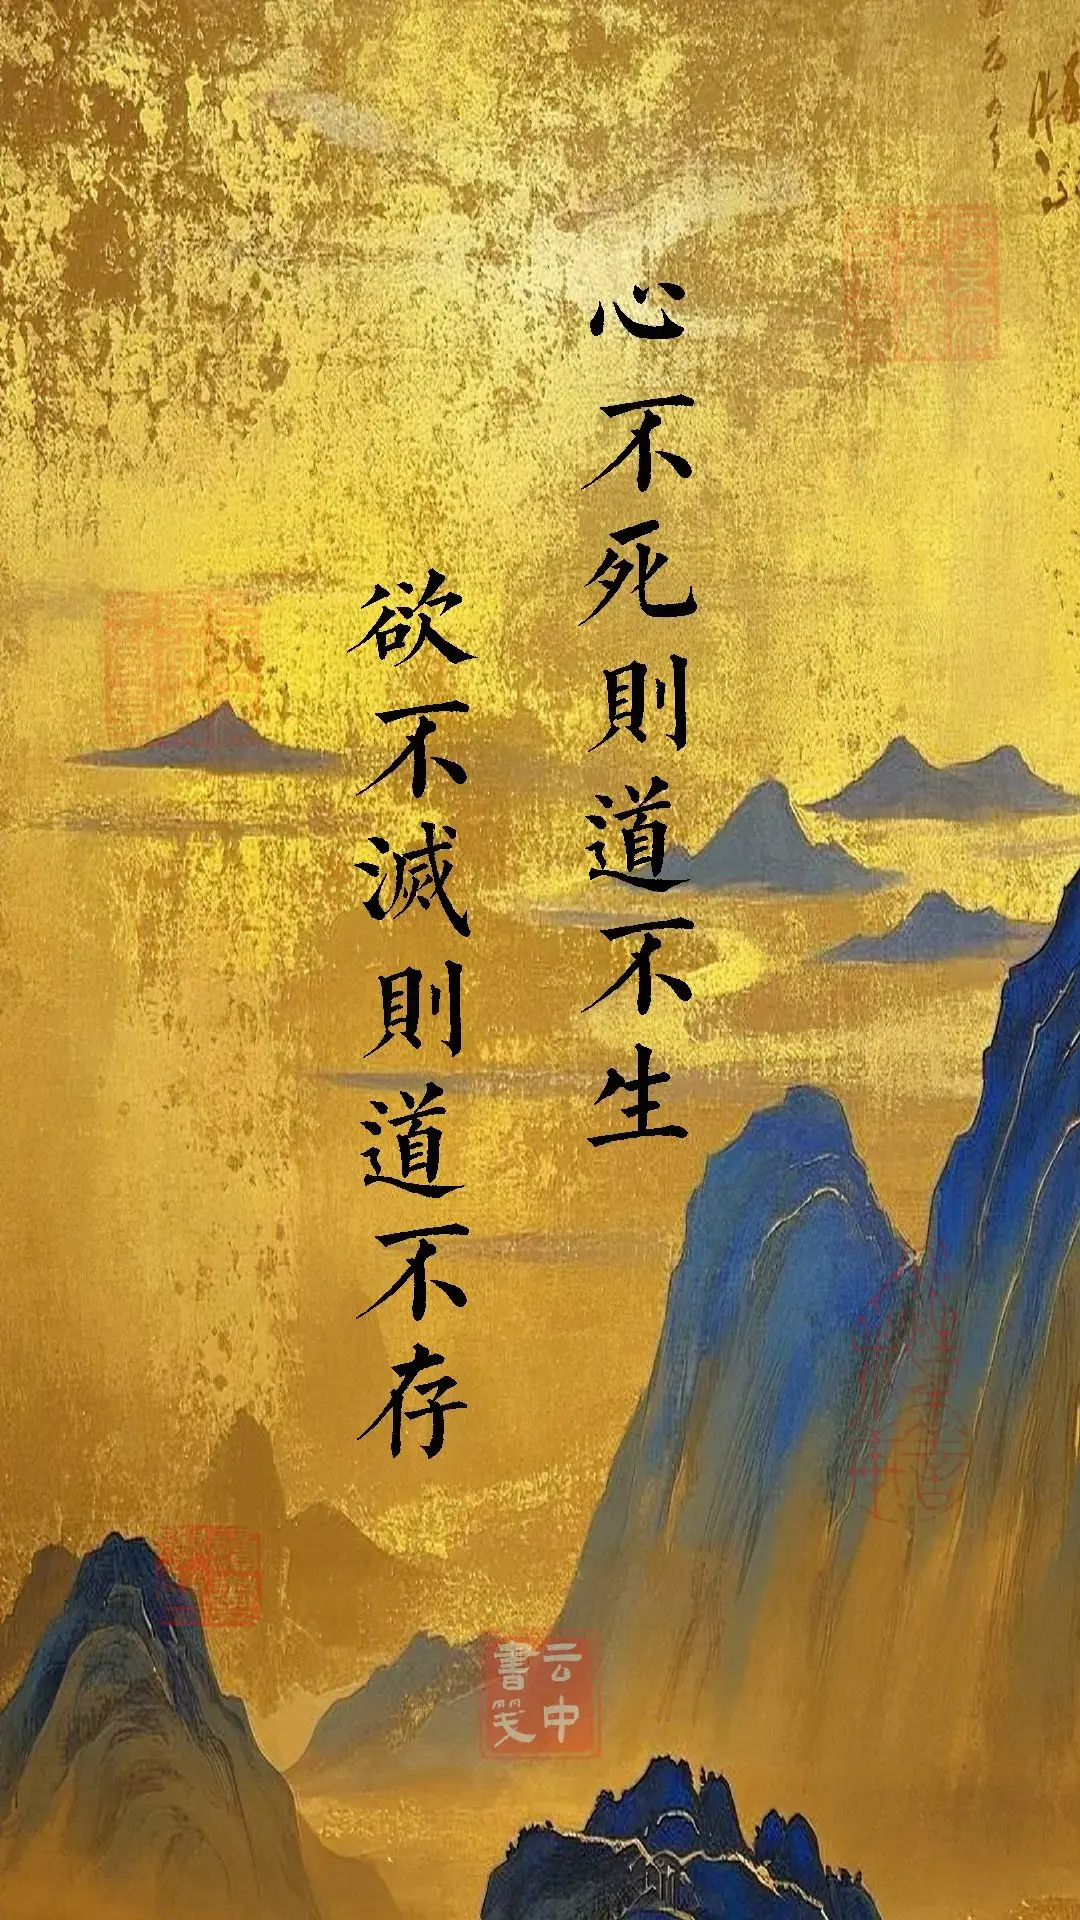 心不死則道不生
欲不滅則道不存
云中
書笺